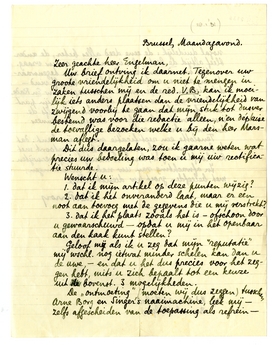 Brussel, Maandagavond.
Zeer geachte heer Engelman,
Uw brief ontving ik daarnet. Tegenover uw
groote vriendelijkheid om u niet te mengen in
zaken tusschen mij en de red. V.B., kan ik moei-
lijk iets anders plaatsen dan de vriendelijkheid van
zwijgend voorbij te gaan dat mijn stuk tot zoover
bestemd was voor die redactie alleen, n'en déplaise
de toevallige bezoeken welke u bij den heer Mars-
man aflegt.
Dit dus daargelaten, zou ik gaarne weten wat
precies uw bedoeling was toen u mij uw
stuurde.
Wenscht u:
1. dat ik mijn artikel op deze punten wijzig?
2. dat ik het onveranderd laat, maar er een
noot aan toevoeg met de gegevens die u mij verstrekt?
3. dat ik het plaats zooals het is - ofschoon door
u gewaarschuwd - opdat u mij in het open-
baar aan den kaak kunt stellen?
Geloof mij als ik u zeg dat mijn "reputatie"
mij wschl. nog ietwat minder schelen kan dan u
de uwe, - en dat u het dus precies voor het zeg-
gen heeft, mits u zich bepaalt tot een keuze
uit de bovenst. 3 mogelijkheden.
De "ontmoeting", moeten wij dus zeggen, tusschen
Arne Borg en Singer's naaimachine, leek mij -
zelfs afgescheiden van de toepassing als refrein -